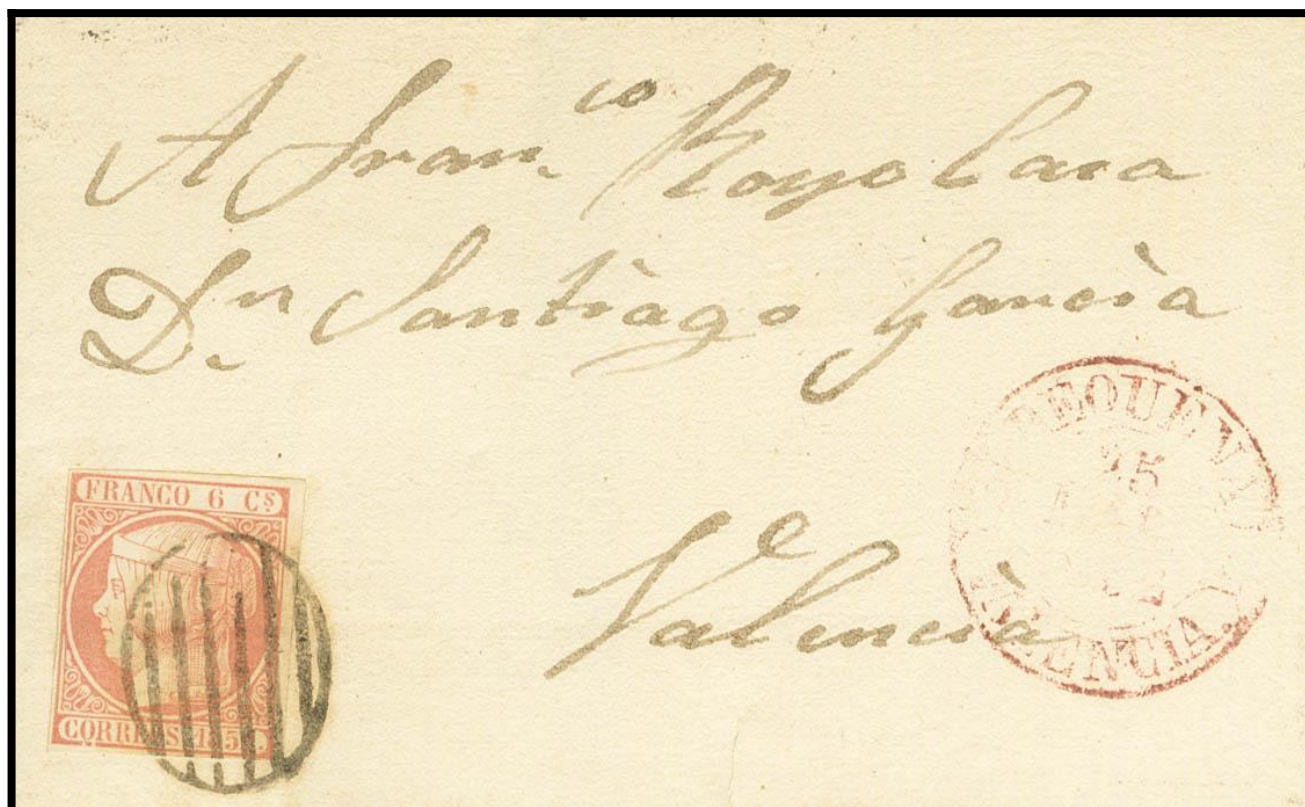 A Fran.co Royo Lara
Dn Santiago Garcia
Valencia
FRANCO 6 CS
CORREOS 185
REQUENA
25
VALENCIA